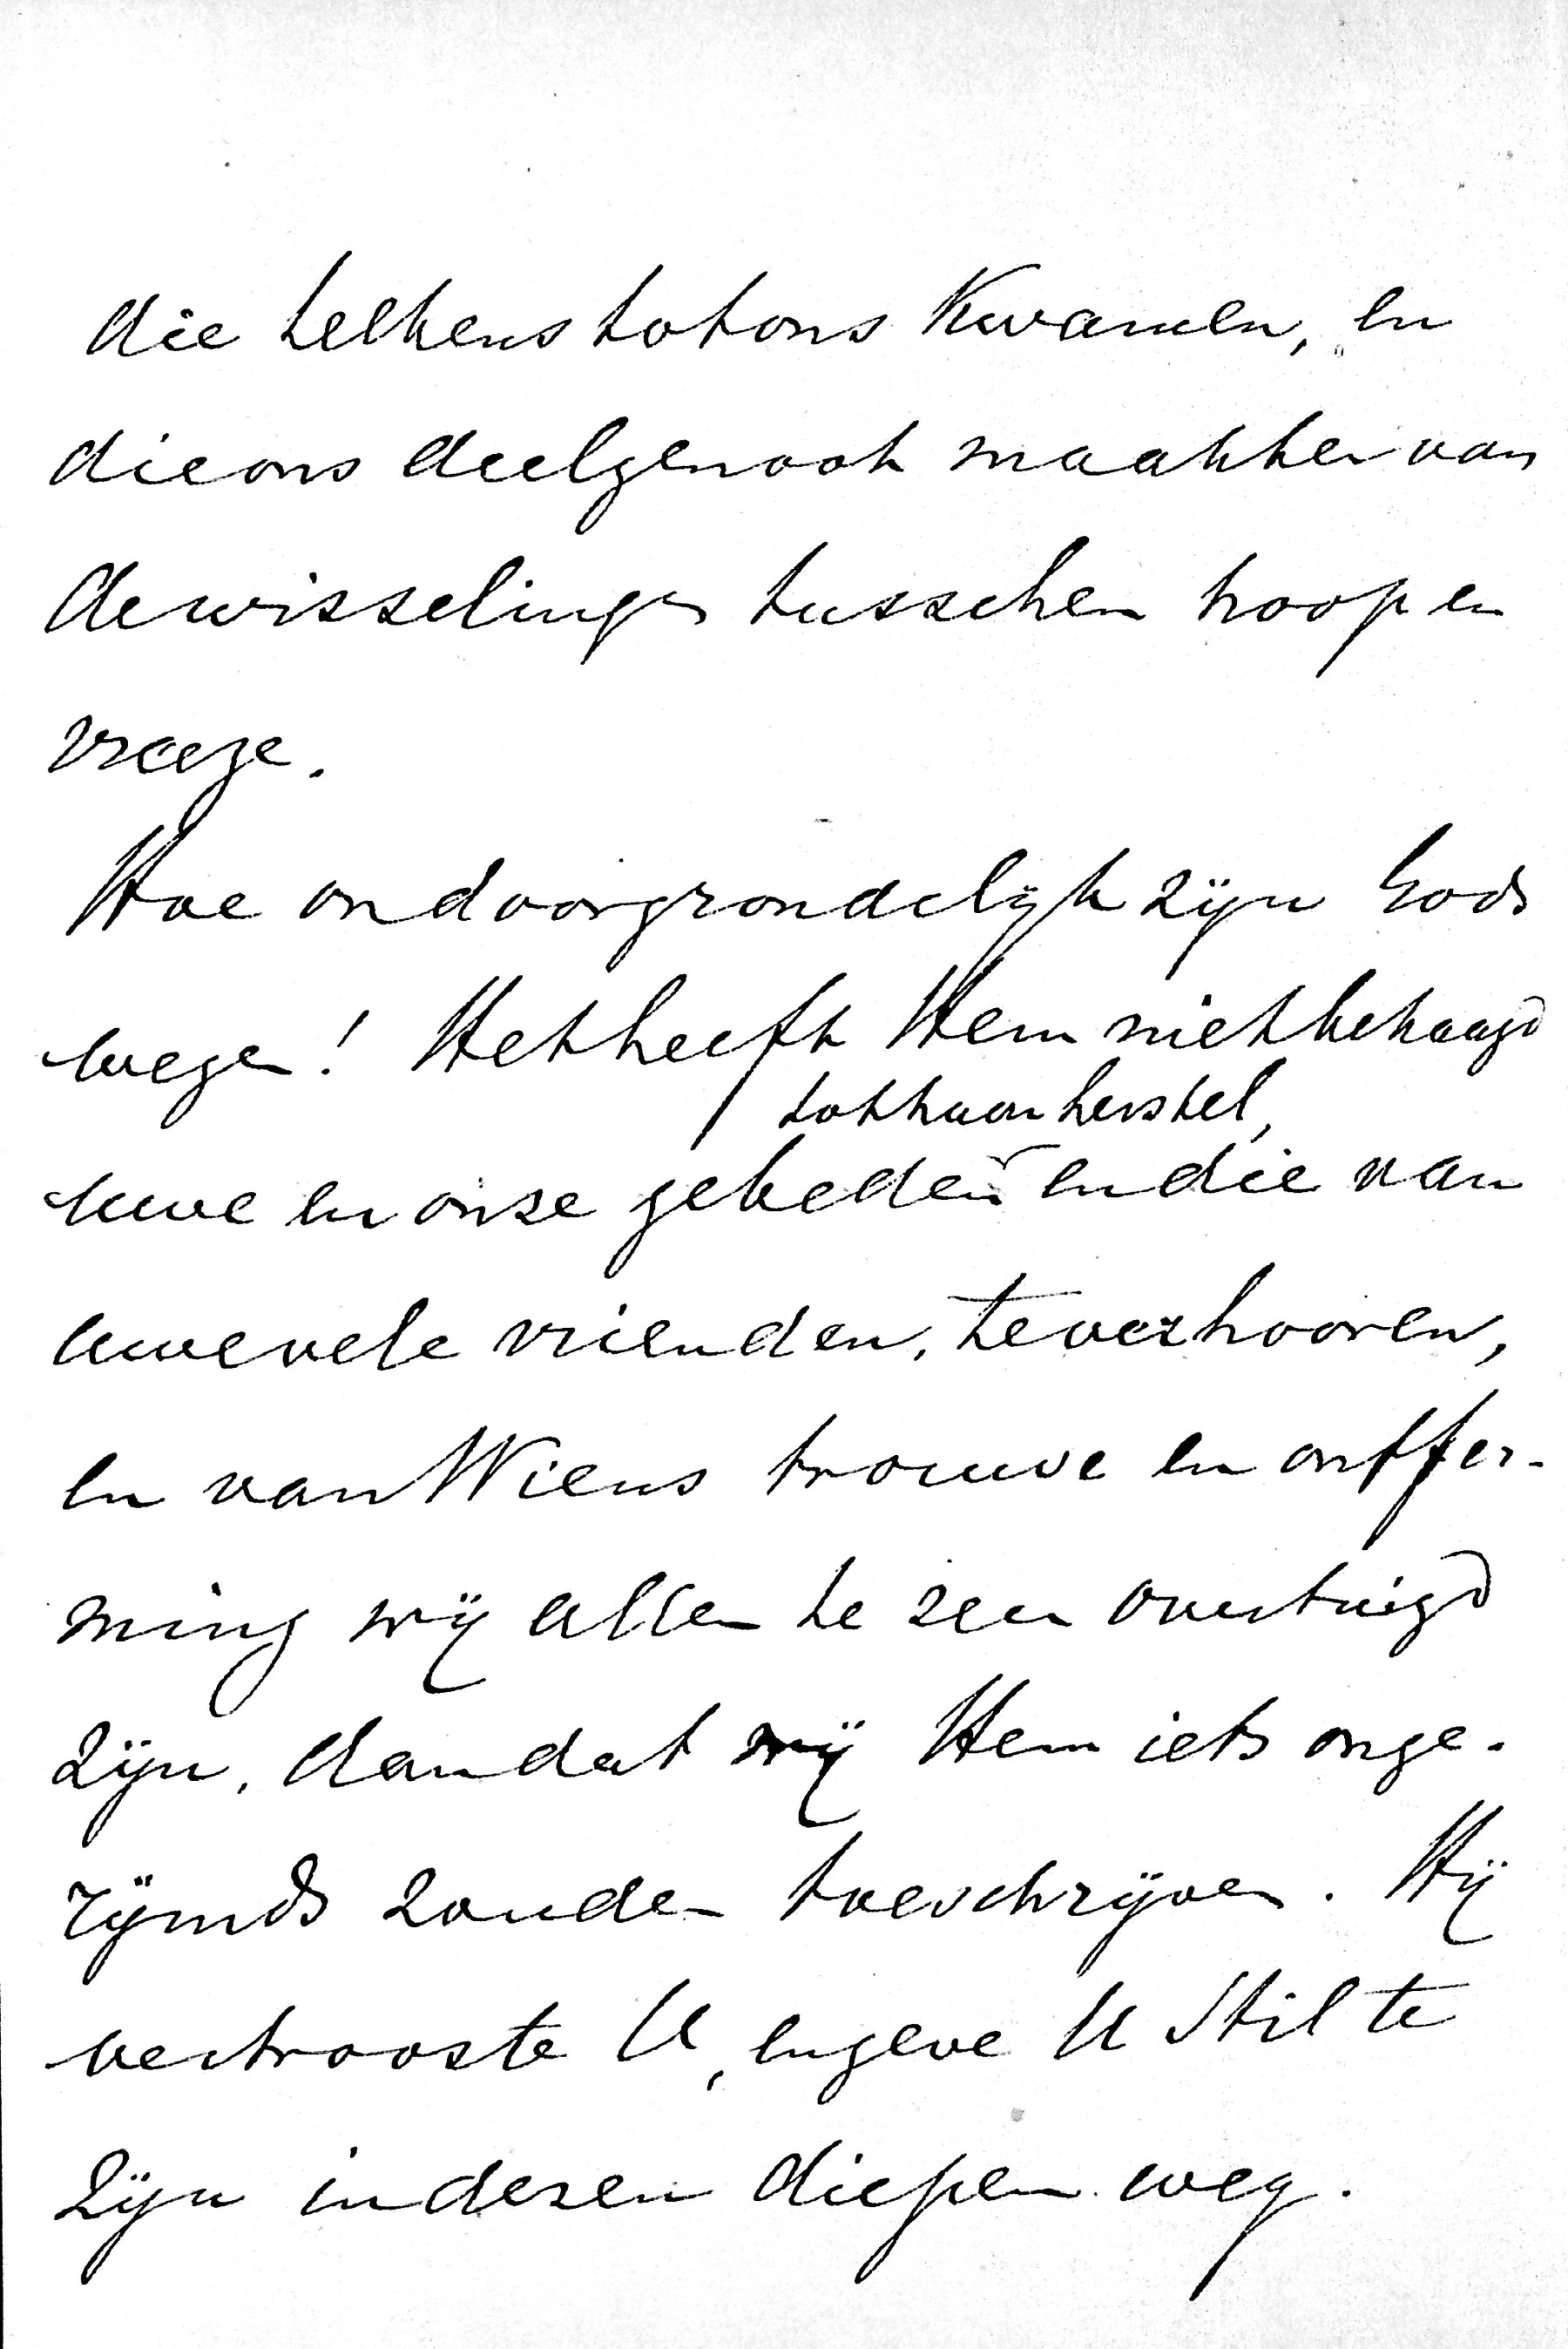 die telkens tot ons kwamen, en
die ons deelgenoot maakten van
de wisselings tusschen hoop en
vreeze.
Hoe ondoorgrondelijk zijn Gods
wegen! Het heeft Hem niet behaagd
tot haar herstel,
uwe en onze gebeden en die van
uwe vele vrienden, te verhooren,
en van Wiens trouwe en ontfer-
ming wij allen te zeer overtuigd
zijn, dan dat wij Hem iets onge-
rijmds zouden toeschrijven. Hij
vertrooste U, en geve U stil te
zijn in dezen diepen weg.